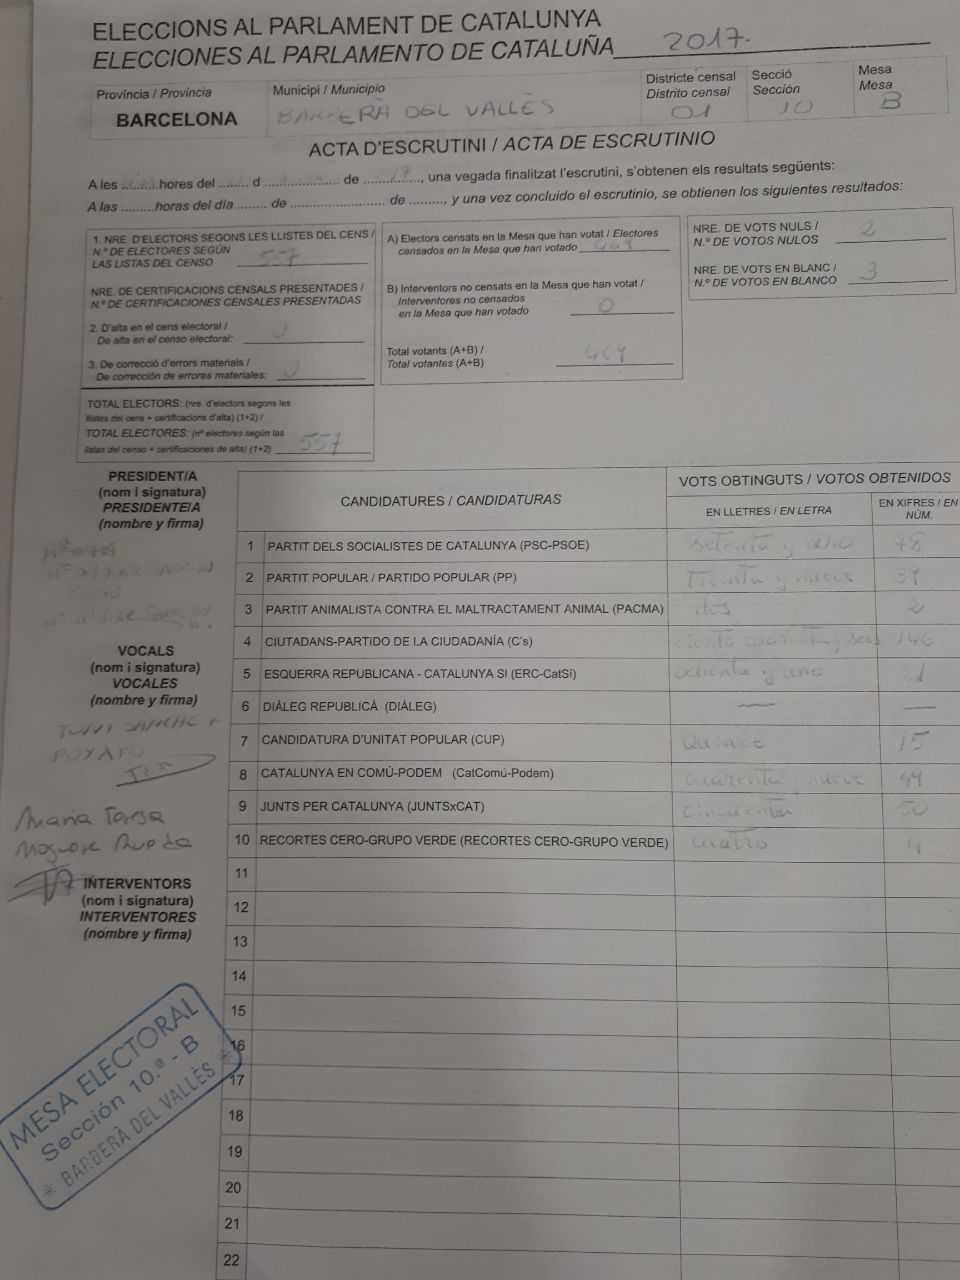 ELECCIONS AL PARLAMENT DE CATALUNYA
ELECCIONES AL PARLAMENTO DE CATALUÑA 2017.
Província / Provincia
BARCELONA
Municipi / Municipio
BARBERÀ DEL VALLÈS
Districte censal
Distrito censal
01
Secció
Sección
10
Mesa
Mesa
B
ACTA D'ESCRUTINI / ACTA DE ESCRUTINIO
A les ......... hores del ........ d ..................... de ..............., una vegada finalitzat l'escrutini, s'obtenen els resultats següents:
A las .........horas del día ........ de .......................... de ........., y una vez concluido el escrutinio, se obtienen los siguientes resultados:
1. NRE. D'ELECTORS SEGONS LES LLISTES DEL CENS /
N.º DE ELECTORES SEGÚN
LAS LISTAS DEL CENSO 557
NRE. DE CERTIFICACIONS CENSALS PRESENTADES /
N.º DE CERTIFICACIONES CENSALES PRESENTADAS
2. D'alta en el cens electoral /
De alta en el censo electoral: 0
3. De correcció d'errors materials /
De corrección de errores materiales: 0
TOTAL ELECTORS: (nre. d'electors segons les
llistes del cens + certificacions d'alta) (1+2) /
TOTAL ELECTORES: (nº electores según las
listas del censo + certificaciones de alta) (1+2) 557
A) Electors censats en la Mesa que han votat / Electores
censados en la Mesa que han votado 469
B) Interventors no censats en la Mesa que han votat /
Interventores no censados
en la Mesa que han votado 0
Total votants (A+B) /
Total votantes (A+B) 469
NRE. DE VOTS NULS /
N.º DE VOTOS NULOS 2
NRE. DE VOTS EN BLANC /
N.º DE VOTOS EN BLANCO 3
PRESIDENT/A
(nom i signatura)
PRESIDENTE/A
(nombre y firma)
VOCALS
(nom i signatura)
VOCALES
(nombre y firma)
POYATO
Maria Teresa
INTERVENTORS
(nom i signatura)
INTERVENTORES
(nombre y firma)
CANDIDATURES / CANDIDATURAS
VOTS OBTINGUTS / VOTOS OBTENIDOS
EN LLETRES / EN LETRA
EN XIFRES / EN
NÚM.
1 PARTIT DELS SOCIALISTES DE CATALUNYA (PSC-PSOE) setenta y ocho 78
2 PARTIT POPULAR / PARTIDO POPULAR (PP) treinta y nueve 39
3 PARTIT ANIMALISTA CONTRA EL MALTRACTAMENT ANIMAL (PACMA) dos 2
4 CIUTADANS-PARTIDO DE LA CIUDADANÍA (C's) ciento cuarenta y seis 146
5 ESQUERRA REPUBLICANA - CATALUNYA SI (ERC-CatSí) ochenta y uno 81
6 DIÀLEG REPUBLICÀ (DIÀLEG) — —
7 CANDIDATURA D'UNITAT POPULAR (CUP) Quince 15
8 CATALUNYA EN COMÚ-PODEM (CatComú-Podem) cuarenta y nueve 49
9 JUNTS PER CATALUNYA (JUNTSxCAT) cincuenta 50
10 RECORTES CERO-GRUPO VERDE (RECORTES CERO-GRUPO VERDE) cuatro 4
11
12
13
14
15
16
17
18
19
20
21
22
MESA ELECTORAL
Sección 10.ª - B
* BARBERÀ DEL VALLÈS *